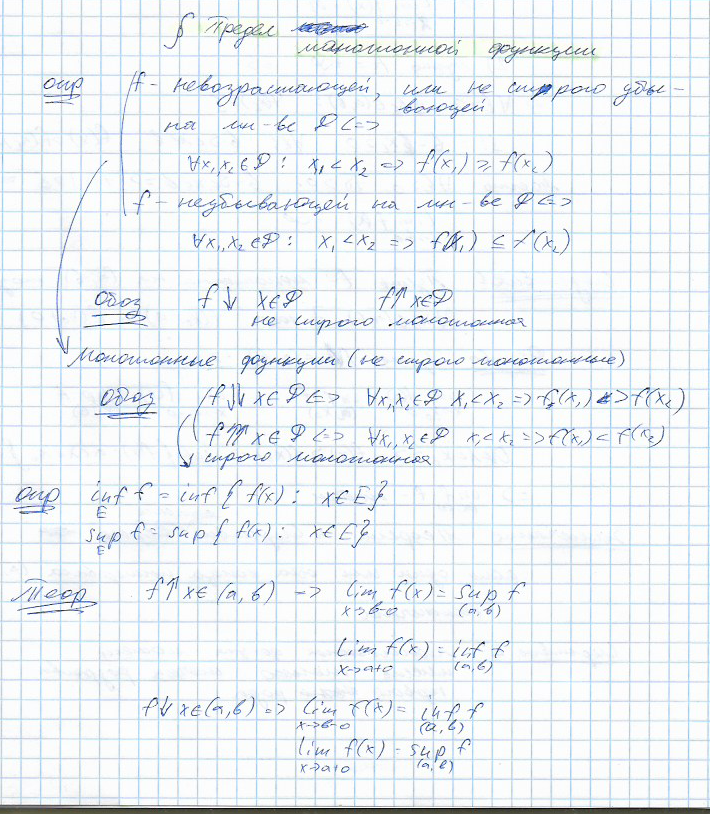 § Предел
монотонной функции
опр f - невозрастающей, или не строго убы-
вающей
на мн-ве D <=>
∀x₁,x₂∈D : x₁ < x₂ => f(x₁) ≥ f(x₂)
f - неубывающей на мн-ве D <=>
∀x₁,x₂∈D : x₁ < x₂ => f(x₁) ≤ f(x₂)
Обоз f↓ x∈D f↑ x∈D
не строго монотонная
Монотонные функции (не строго монотонные)
Обоз f↓↓ x∈D <=> ∀x₁,x₂∈D x₁ < x₂ => f(x₁) > f(x₂)
f↑↑ x∈D <=> ∀x₁,x₂∈D x₁ < x₂ => f(x₁) < f(x₂)
строго монотонная
опр inf f = inf { f(x) : x∈E}
E
sup f = sup { f(x) : x∈E}
E
Теор f↑ x∈(a,b) => lim f(x) = sup f
x→b-0 (a,b)
lim f(x) = inf f
x→a+0 (a,b)
f↓ x∈(a,b) => lim f(x) = inf f
x→b-0 (a,b)
lim f(x) = sup f
x→a+0 (a,b)